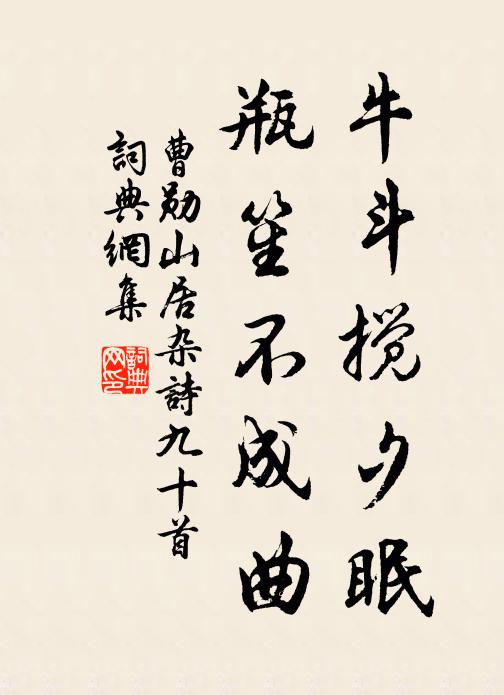 牛斗搅夕眠
瓶笙不成曲
曹勋山居杂詩九十首
詞典網集
詞典网印